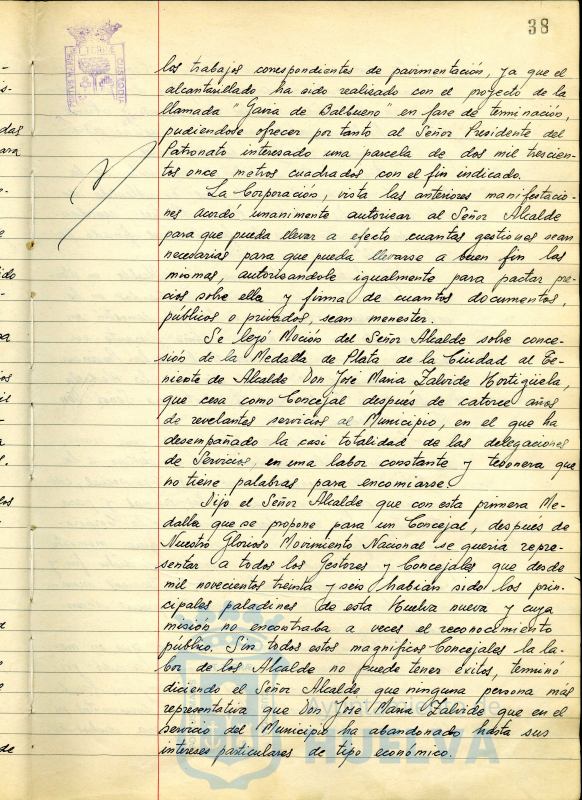 38
los trabajos correspondientes de pavimentación, ya que el
alcantarillado ha sido realizado con el proyecto de la
llamada "Gavia de Balbueno" en fase de terminación,
pudiendose ofrecer por tanto al Señor Presidente del
Patronato interesado una parcela de dos mil trescien-
tos once, metros cuadrados con el fin indicado.
La Corporación, vista las anteriores manifestacio-
nes acordó unanimente autorizar al Señor Alcalde
para que pueda llevar a efecto cuantas gestiones sean
necesarias para que pueda llevarse a buen fin las
mismas, autorisandole igualmente para pactar pre-
cios sobre ella y firma de cuantos documentos,
públicos o privados, sean menester.
Se leyó Moción del Señor Alcalde sobre conce-
sión de la Medalla de Plata de la Ciudad al Te-
niente de Alcalde Don José Maria Zalvide Hortigüela,
que cesa como Concejal después de catorce años
de revelantes servicios al Municipio, en el que ha
desempañado la casi totalidad de las delegaciones
de Servicios, en una labor constante y tesonera que
no tiene palabras para encomiarse.
Dijo el Señor Alcalde que con esta primera Me-
dalla que se propone para un Concejal, después de
Nuestro Glorioso Movimiento Nacional se queria repre-
sentar a todos los Gestores y Concejales que desde
mil novecientos treinta y seis habian sido los prin-
cipales paladines de esta Huelva nueva y cuya
misión no encontraba a veces el reconocimiento
público. Sin todos estos magnificos Concejales la la-
bor de los Alcalde no puede tener éxitos, terminó
diciendo el Señor Alcalde que ninguna persona más
representativa que Don José Maria Zalvide que en el
servicio del Municipio ha abandonado hasta sus
intereses particulares de tipo económico.
Ayuntamiento de
HUELVA